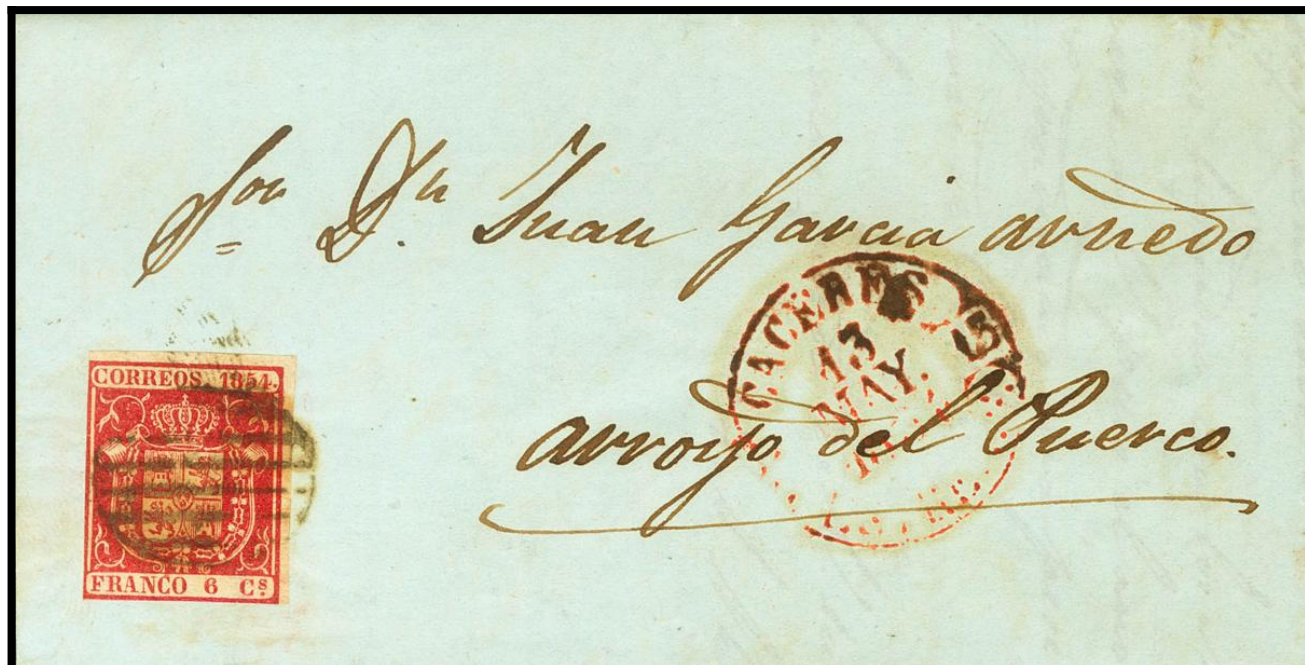 Sor Dn. Juan Garcia arnedo
CACERES 5
13
MAY.
arroyo del Puerco.
CORREOS 1854.
FRANCO 6 Cs